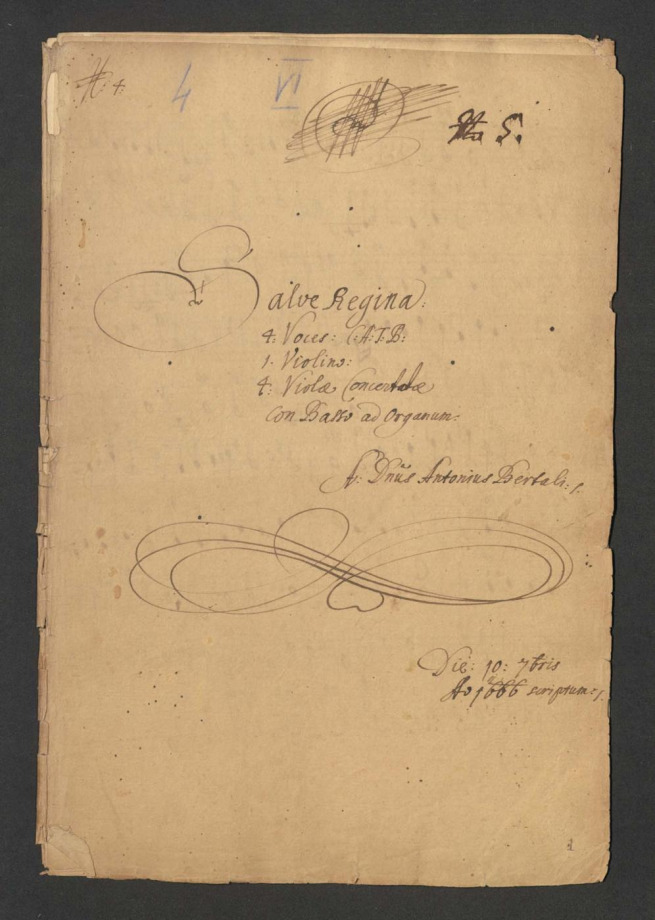 4.
4
VI
5.
Salve Regina:
4: Voces: C:A:T:B:
1. Violino:
4: Violæ Concertatæ
Con Basso ad Organum:
A: Dnús Antonius Bertali:
Die: 10: 7bris
Ao 1666 scriptum:
1